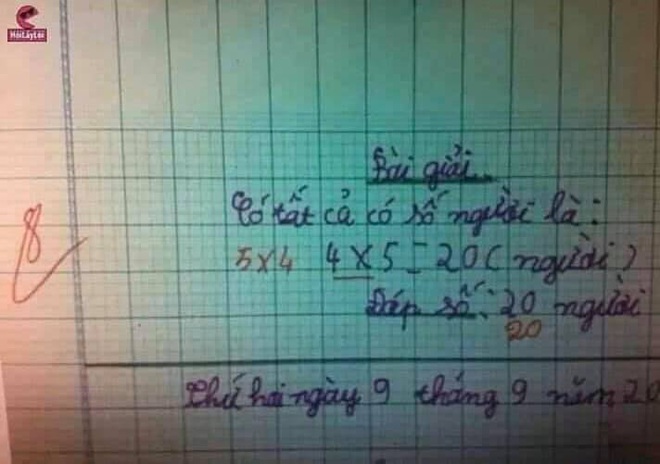 HóiLấyLãi
8
Bài giải
Có tất cả có số người là:
5x4 4 x 5 = 20 ( người )
Đáp số: 20 người
20
Thứ hai ngày 9 tháng 9 năm 20